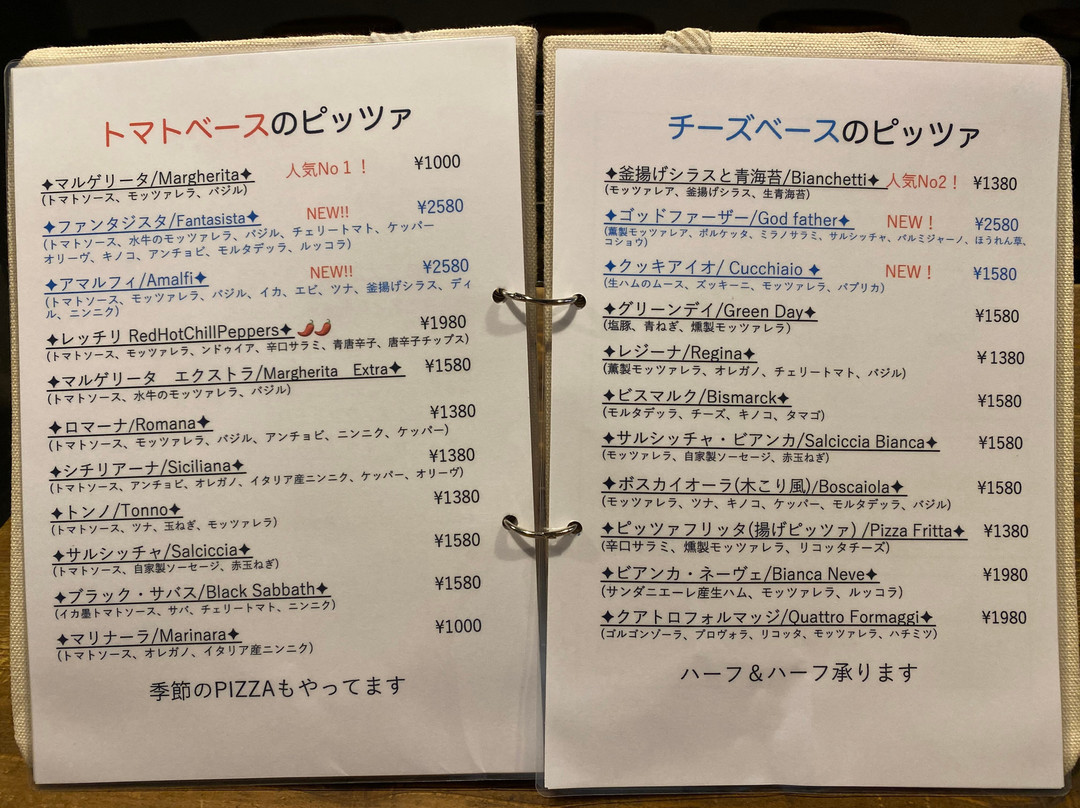 トマトベースのピッツァ
✦マルゲリータ/Margherita✦ 人気No1！ ¥1000
(トマトソース、モッツァレラ、バジル)
✦ファンタジスタ/Fantasista✦ NEW!! ¥2580
(トマトソース、水牛のモッツァレラ、バジル、チェリートマト、ケッパー
オリーヴ、キノコ、アンチョビ、モルタデッラ、ルッコラ)
✦アマルフィ/Amalfi✦ NEW!! ¥2580
(トマトソース、モッツァレラ、バジル、イカ、エビ、ツナ、釜揚げシラス、ディ
ル、ニンニク)
✦レッチリ RedHotChillPeppers✦🌶🌶 ¥1980
(トマトソース、モッツァレラ、ンドゥイア、辛口サラミ、青唐辛子、唐辛子チップス)
✦マルゲリータ　エクストラ/Margherita　Extra✦ ¥1580
(トマトソース、水牛のモッツァレラ、バジル)
✦ロマーナ/Romana✦ ¥1380
(トマトソース、モッツァレラ、バジル、アンチョビ、ニンニク、ケッパー)
✦シチリアーナ/Siciliana✦ ¥1380
(トマトソース、アンチョビ、オレガノ、イタリア産ニンニク、ケッパー、オリーヴ)
✦トンノ/Tonno✦ ¥1380
(トマトソース、ツナ、玉ねぎ、モッツァレラ)
✦サルシッチャ/Salciccia✦ ¥1580
(トマトソース、自家製ソーセージ、赤玉ねぎ)
✦ブラック・サバス/Black Sabbath✦ ¥1580
(イカ墨トマトソース、サバ、チェリートマト、ニンニク)
✦マリナーラ/Marinara✦ ¥1000
(トマトソース、オレガノ、イタリア産ニンニク)
季節のPIZZAもやってます
チーズベースのピッツァ
✦釜揚げシラスと青海苔/Bianchetti✦ 人気No2！ ¥1380
(モッツァレア、釜揚げシラス、生青海苔)
✦ゴッドファーザー/God father✦ NEW！ ¥2580
(薫製モッツァレア、ポルケッタ、ミラノサラミ、サルシッチャ、パルミジャーノ、ほうれん草、
コショウ)
✦クッキアイオ/ Cucchiaio ✦ NEW！ ¥1580
(生ハムのムース、ズッキーニ、モッツァレラ、パプリカ)
✦グリーンデイ/Green Day✦ ¥1580
(塩豚、青ねぎ、燻製モッツァレラ)
✦レジーナ/Regina✦ ¥1380
(薫製モッツァレラ、オレガノ、チェリートマト、バジル)
✦ビスマルク/Bismarck✦ ¥1580
(モルタデッラ、チーズ、キノコ、タマゴ)
✦サルシッチャ・ビアンカ/Salciccia Bianca✦ ¥1580
(モッツァレラ、自家製ソーセージ、赤玉ねぎ)
✦ボスカイオーラ(木こり風)/Boscaiola✦ ¥1580
(モッツァレラ、ツナ、キノコ、ケッパー、モルタデッラ、バジル)
✦ピッツァフリッタ(揚げピッツァ) /Pizza Fritta✦ ¥1380
(辛口サラミ、燻製モッツァレラ、リコッタチーズ)
✦ビアンカ・ネーヴェ/Bianca Neve✦ ¥1980
(サンダニエーレ産生ハム、モッツァレラ、ルッコラ)
✦クアトロフォルマッジ/Quattro Formaggi✦ ¥1980
(ゴルゴンゾーラ、プロヴォラ、リコッタ、モッツァレラ、ハチミツ)
ハーフ＆ハーフ承ります